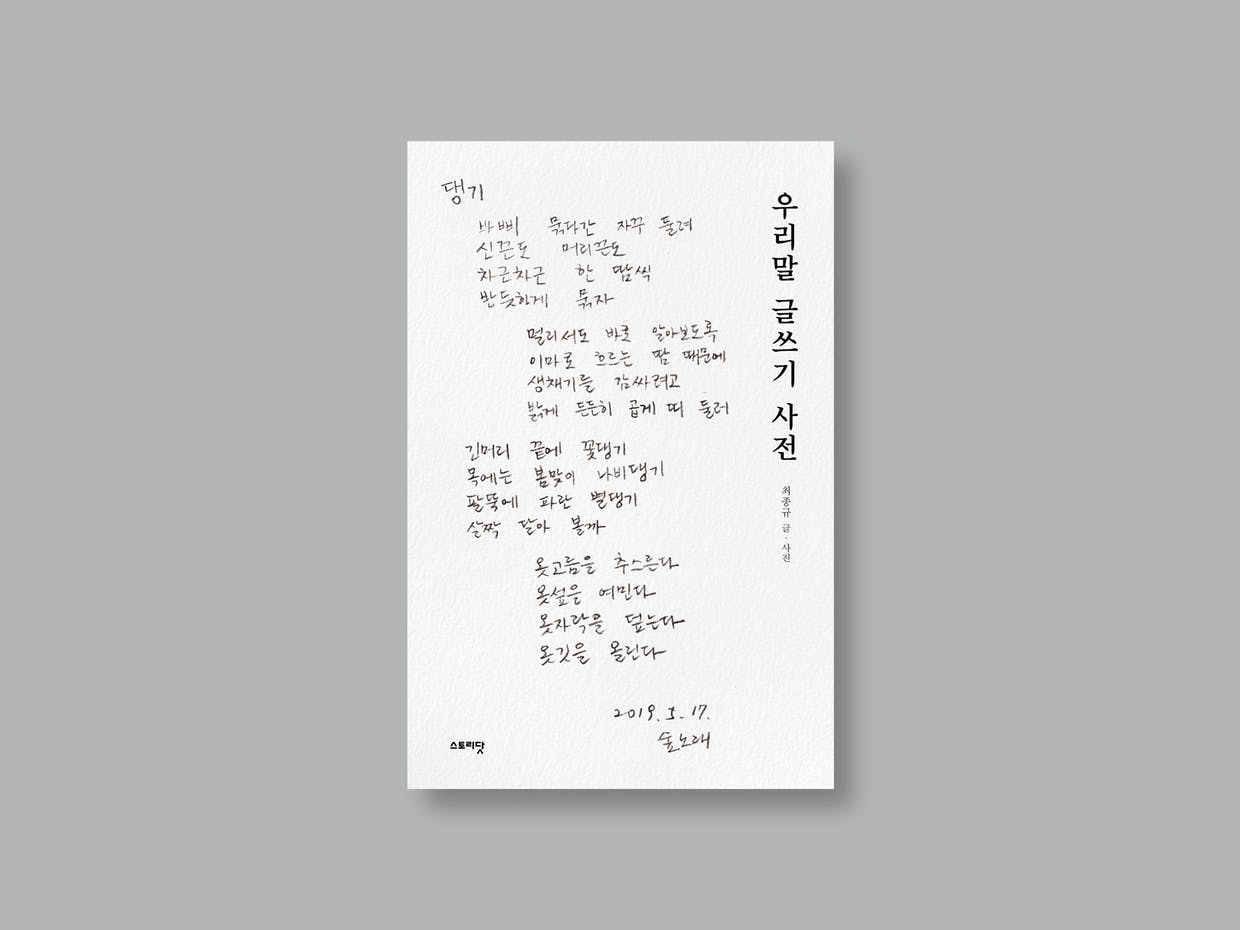 댕기
바삐 묶다간 자꾸 풀려
신끈도 머리끈도
차근차근 한 땀씩
반듯하게 묶자
멀리서도 바로 알아보도록
이마로 흐르는 땀 때문에
생채기를 감싸려고
붉게 든든히 곱게 띠 둘러
긴머리 끝에 꽃댕기
목에는 봄맞이 나비댕기
팔뚝에 파란 별댕기
살짝 달아 볼까
옷고름을 추스른다
옷섶을 여민다
옷자락을 덮는다
옷깃을 올린다
2019. 5. 17.
숲노래
우리말 글쓰기 사전
최종규 글·사진
스토리닷